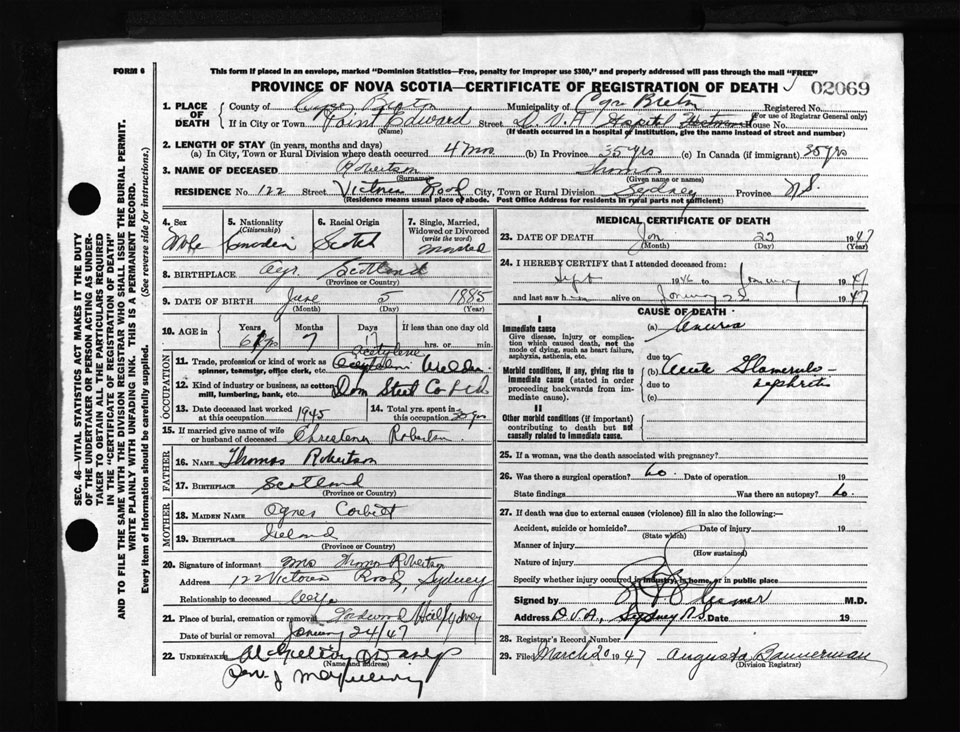 FORM 6
This form if placed in an envelope, marked "Dominion Statistics—Free, penalty for improper use $300," and properly addressed will pass through the mail "FREE"
PROVINCE OF NOVA SCOTIA—CERTIFICATE OF REGISTRATION OF DEATH
02069
1. PLACE OF DEATH
County of Cape Breton Municipality of Cape Breton Registered No.
(For use of Registrar General only)
If in City or Town Point Edward Street D.V.A. Hospital House No.
(Name) (If death occurred in a hospital or institution, give the name instead of street and number)
2. LENGTH OF STAY (in years, months and days)
(a) In City, Town or Rural Division where death occurred 4 mos (b) In Province 35 yrs (c) In Canada (if immigrant) 35 yrs
3. NAME OF DECEASED Robertson Thomas
(Surname) (Given name or names)
RESIDENCE No. 122 Street Victoria Road City, Town or Rural Division Sydney Province N.S.
(Residence means usual place of abode. Post Office Address for residents in rural parts not sufficient)
4. Sex Male
5. Nationality (Citizenship) Canadian
6. Racial Origin Scotch
7. Single, Married, Widowed or Divorced (write the word) Married
8. BIRTHPLACE Ayr. Scotland
(Province or Country)
9. DATE OF BIRTH June 5 1885
(Month) (Day) (Year)
10. AGE in Years 61 Months 7 Days If less than one day old
hrs. or min.
OCCUPATION
11. Trade, profession or kind of work as spinner, teamster, office clerk, etc. Acetylene Welder
12. Kind of industry or business, as cotton mill, lumbering, bank, etc. Dom Steel Co Ltd
13. Date deceased last worked at this occupation 1945
14. Total yrs. spent in this occupation 30 yrs
15. If married give name of wife or husband of deceased Christena Robertson
FATHER
16. NAME Thomas Robertson
17. BIRTHPLACE Scotland
(Province or Country)
MOTHER
18. MAIDEN NAME Agnes
19. BIRTHPLACE Ireland
(Province or Country)
20. Signature of informant Mrs Thomas Robertson
Address 122 Victoria Road, Sydney
Relationship to deceased Wife
21. Place of burial, cremation or removal Sydney
Date of burial or removal January 24/47
22. UNDERTAKER
(Name and address)
MEDICAL CERTIFICATE OF DEATH
23. DATE OF DEATH Jan 22 1947
(Month) (Day) (Year)
24. I HEREBY CERTIFY that I attended deceased from:
Sept 1946 to January 1947
and last saw him alive on January 22 1947
CAUSE OF DEATH
I
Immediate cause (a) Anuria
Give disease, injury or complication which caused death, not the mode of dying, such as heart failure, asphyxia, asthenia, etc.
due to
Morbid conditions, if any, giving rise to immediate cause (stated in order proceeding backwards from immediate cause).
(b) Acute Glomerulo-nephritis
due to
(c)
II
Other morbid conditions (if important) contributing to death but not causally related to immediate cause.
25. If a woman, was the death associated with pregnancy?
26. Was there a surgical operation? no. Date of operation 19
State findings Was there an autopsy? no.
27. If death was due to external causes (violence) fill in also the following:—
Accident, suicide or homicide? Date of injury 19
(State which)
Manner of injury
(How sustained)
Nature of injury
Specify whether injury occurred in industry, in home, or in public place
Signed by M.D.
Address D.V.A., Sydney N.S. Date 19
28. Registrar's Record Number
29. Filed March 20 1947 Augusta Bannerman
(Division Registrar)
SEC. 46—VITAL STATISTICS ACT MAKES IT THE DUTY
OF THE UNDERTAKER OR PERSON ACTING AS UNDERTAKER TO OBTAIN ALL THE PARTICULARS REQUIRED
IN THE "CERTIFICATE OF REGISTRATION OF DEATH"
AND TO FILE THE SAME WITH THE DIVISION REGISTRAR WHO SHALL ISSUE THE BURIAL PERMIT.
WRITE PLAINLY WITH UNFADING INK. THIS IS A PERMANENT RECORD.
Every item of information should be carefully supplied. (See reverse side for instructions.)